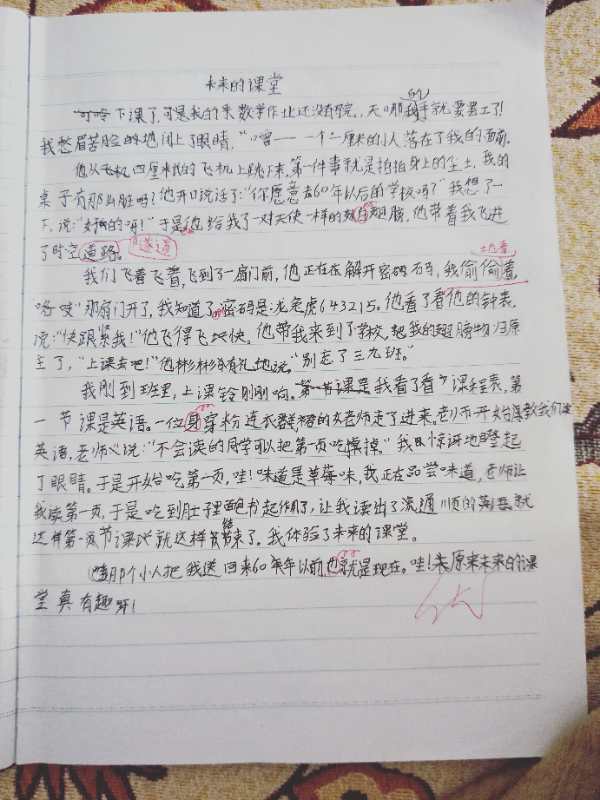 未来的课堂
"叮呤下课了,可是我的朱数学作业还没有写完,天哪我手就要罢工了!
我愁眉苦脸的地闭上了眼睛,"噌——一个二厘米的小人落在了我的面前.
他从飞机四厘米的飞机上跳下来,第一件事就是拍拍身上的尘土,我的
桌子有那么脏吗?他开口说话了:"你愿意去60年以后的学校吗?"我想了一
下,说:"好啊!"于是他给我了一对天使一样的翅膀,他带着我飞进
了时空道路。隧道
我们飞着飞着,飞到了一扇门前,他正在在解开密码,我偷偷看
地看
"咯吱"那扇门开了,我知道了密码是:龙兔虎643215.他看了看他的钟表,
说:"快跟紧我!"他飞得飞快,他带我来到了学校,把我的翅膀物归原
主了,"上课去吧!"他彬彬有礼地说,"别忘了三九班."
我刚到班里,上课铃刚刚响。第一节课是我看了看课程表,第
一节课是英语。一位身穿粉连衣群裙的女老师走了进来。老师开始教我们
英语,老师说:"不会读的同学可以把第一页吃掉."我惊讶地瞪起
了眼睛。于是开始吃第一页,哇!味道是草莓味,我正在品尝味道,老师让
我读第一页,于是吃到肚子里的书起作用了,让我读出了流通顺的英语.就
这样第一节课就这样结束了。我体验了未来的课堂。
那个小人把我送回来60年以前也就是现在。哇!原来未来的课
堂真有趣呀!